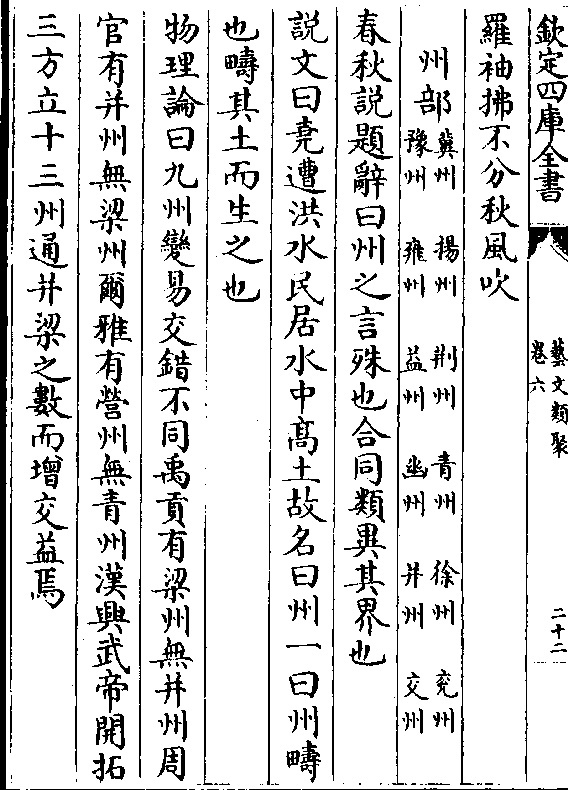 欽定四庫全書
藝文類聚
卷六
二十二
羅袖拂不分秋風吹
州部
冀州 揚州 荆州 青州 徐州 兖州
豫州 雍州 益州 幽州 并州 交州
春秋説題辭曰州之言殊也合同類異其界也
説文曰堯遭洪水民居水中髙土故名曰州一曰州疇
也疇其土而生之也
物理論曰九州變易交錯不同禹貢有梁州無并州周
官有并州無梁州爾雅有營州無青州漢興武帝開拓
三方立十三州通并梁之數而增交益焉